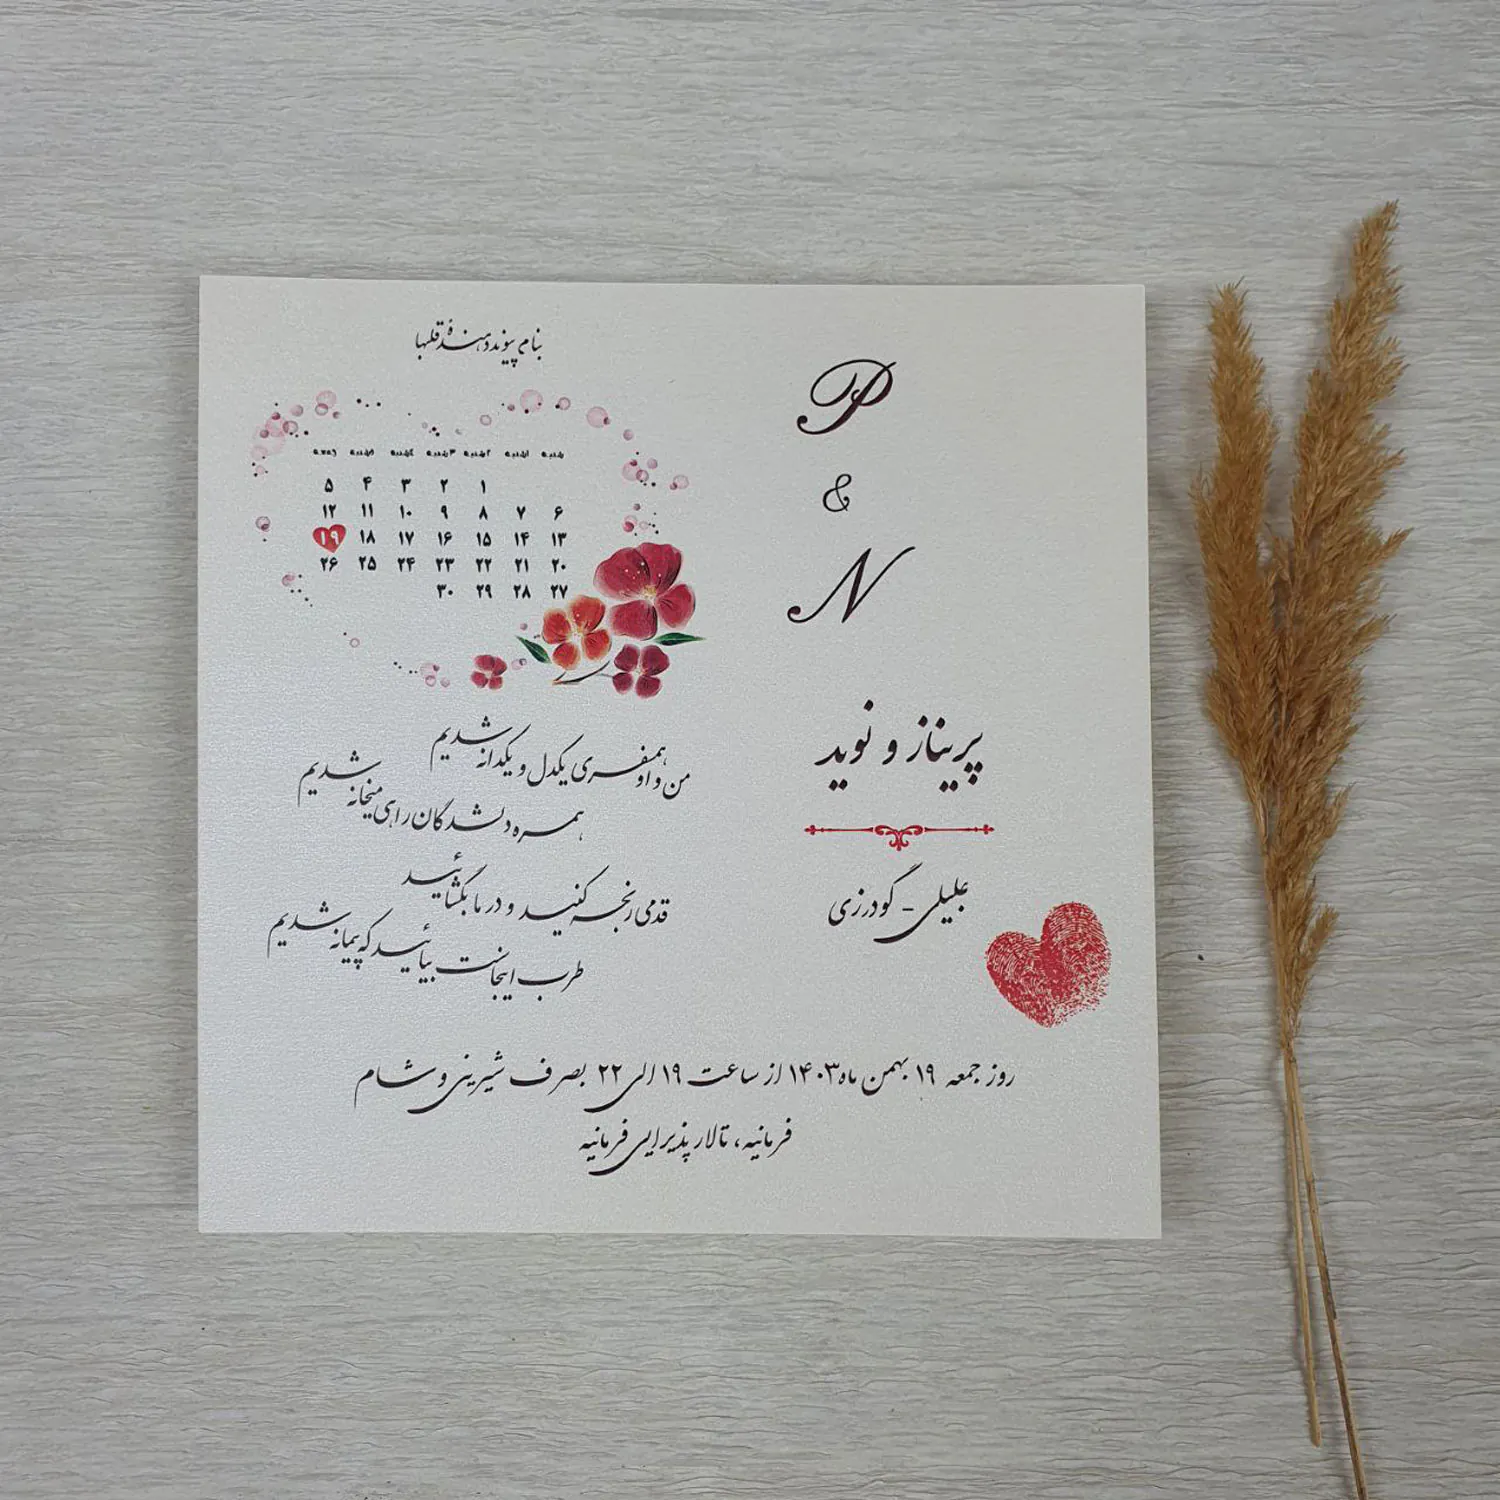 بنام پیوند دهندهٔ قلبها
شنبه ۱شنبه ۲شنبه ۳شنبه ۴شنبه ۵شنبه جمعه
۱ ۲ ۳ ۴ ۵
۶ ۷ ۸ ۹ ۱۰ ۱۱ ۱۲
۱۳ ۱۴ ۱۵ ۱۶ ۱۷ ۱۸ ۱۹
۲۰ ۲۱ ۲۲ ۲۳ ۲۴ ۲۵ ۲۶
۲۷ ۲۸ ۲۹ ۳۰
من و او همسفری یکدل و یکدانه شدیم
همره دلشدگان راهی میخانه شدیم
قدمی رنجه کنید و در ما بگشائید
طرب اینجاست بیائید که پیمانه شدیم
P
&
N
پریناز و نوید
علیلی - گودرزی
روز جمعه ۱۹ بهمن ماه ۱۴۰۳ از ساعت ۱۹ الی ۲۲ بصرف شیرینی و شام
فرمانیه، تالار پذیرایی فرمانیه